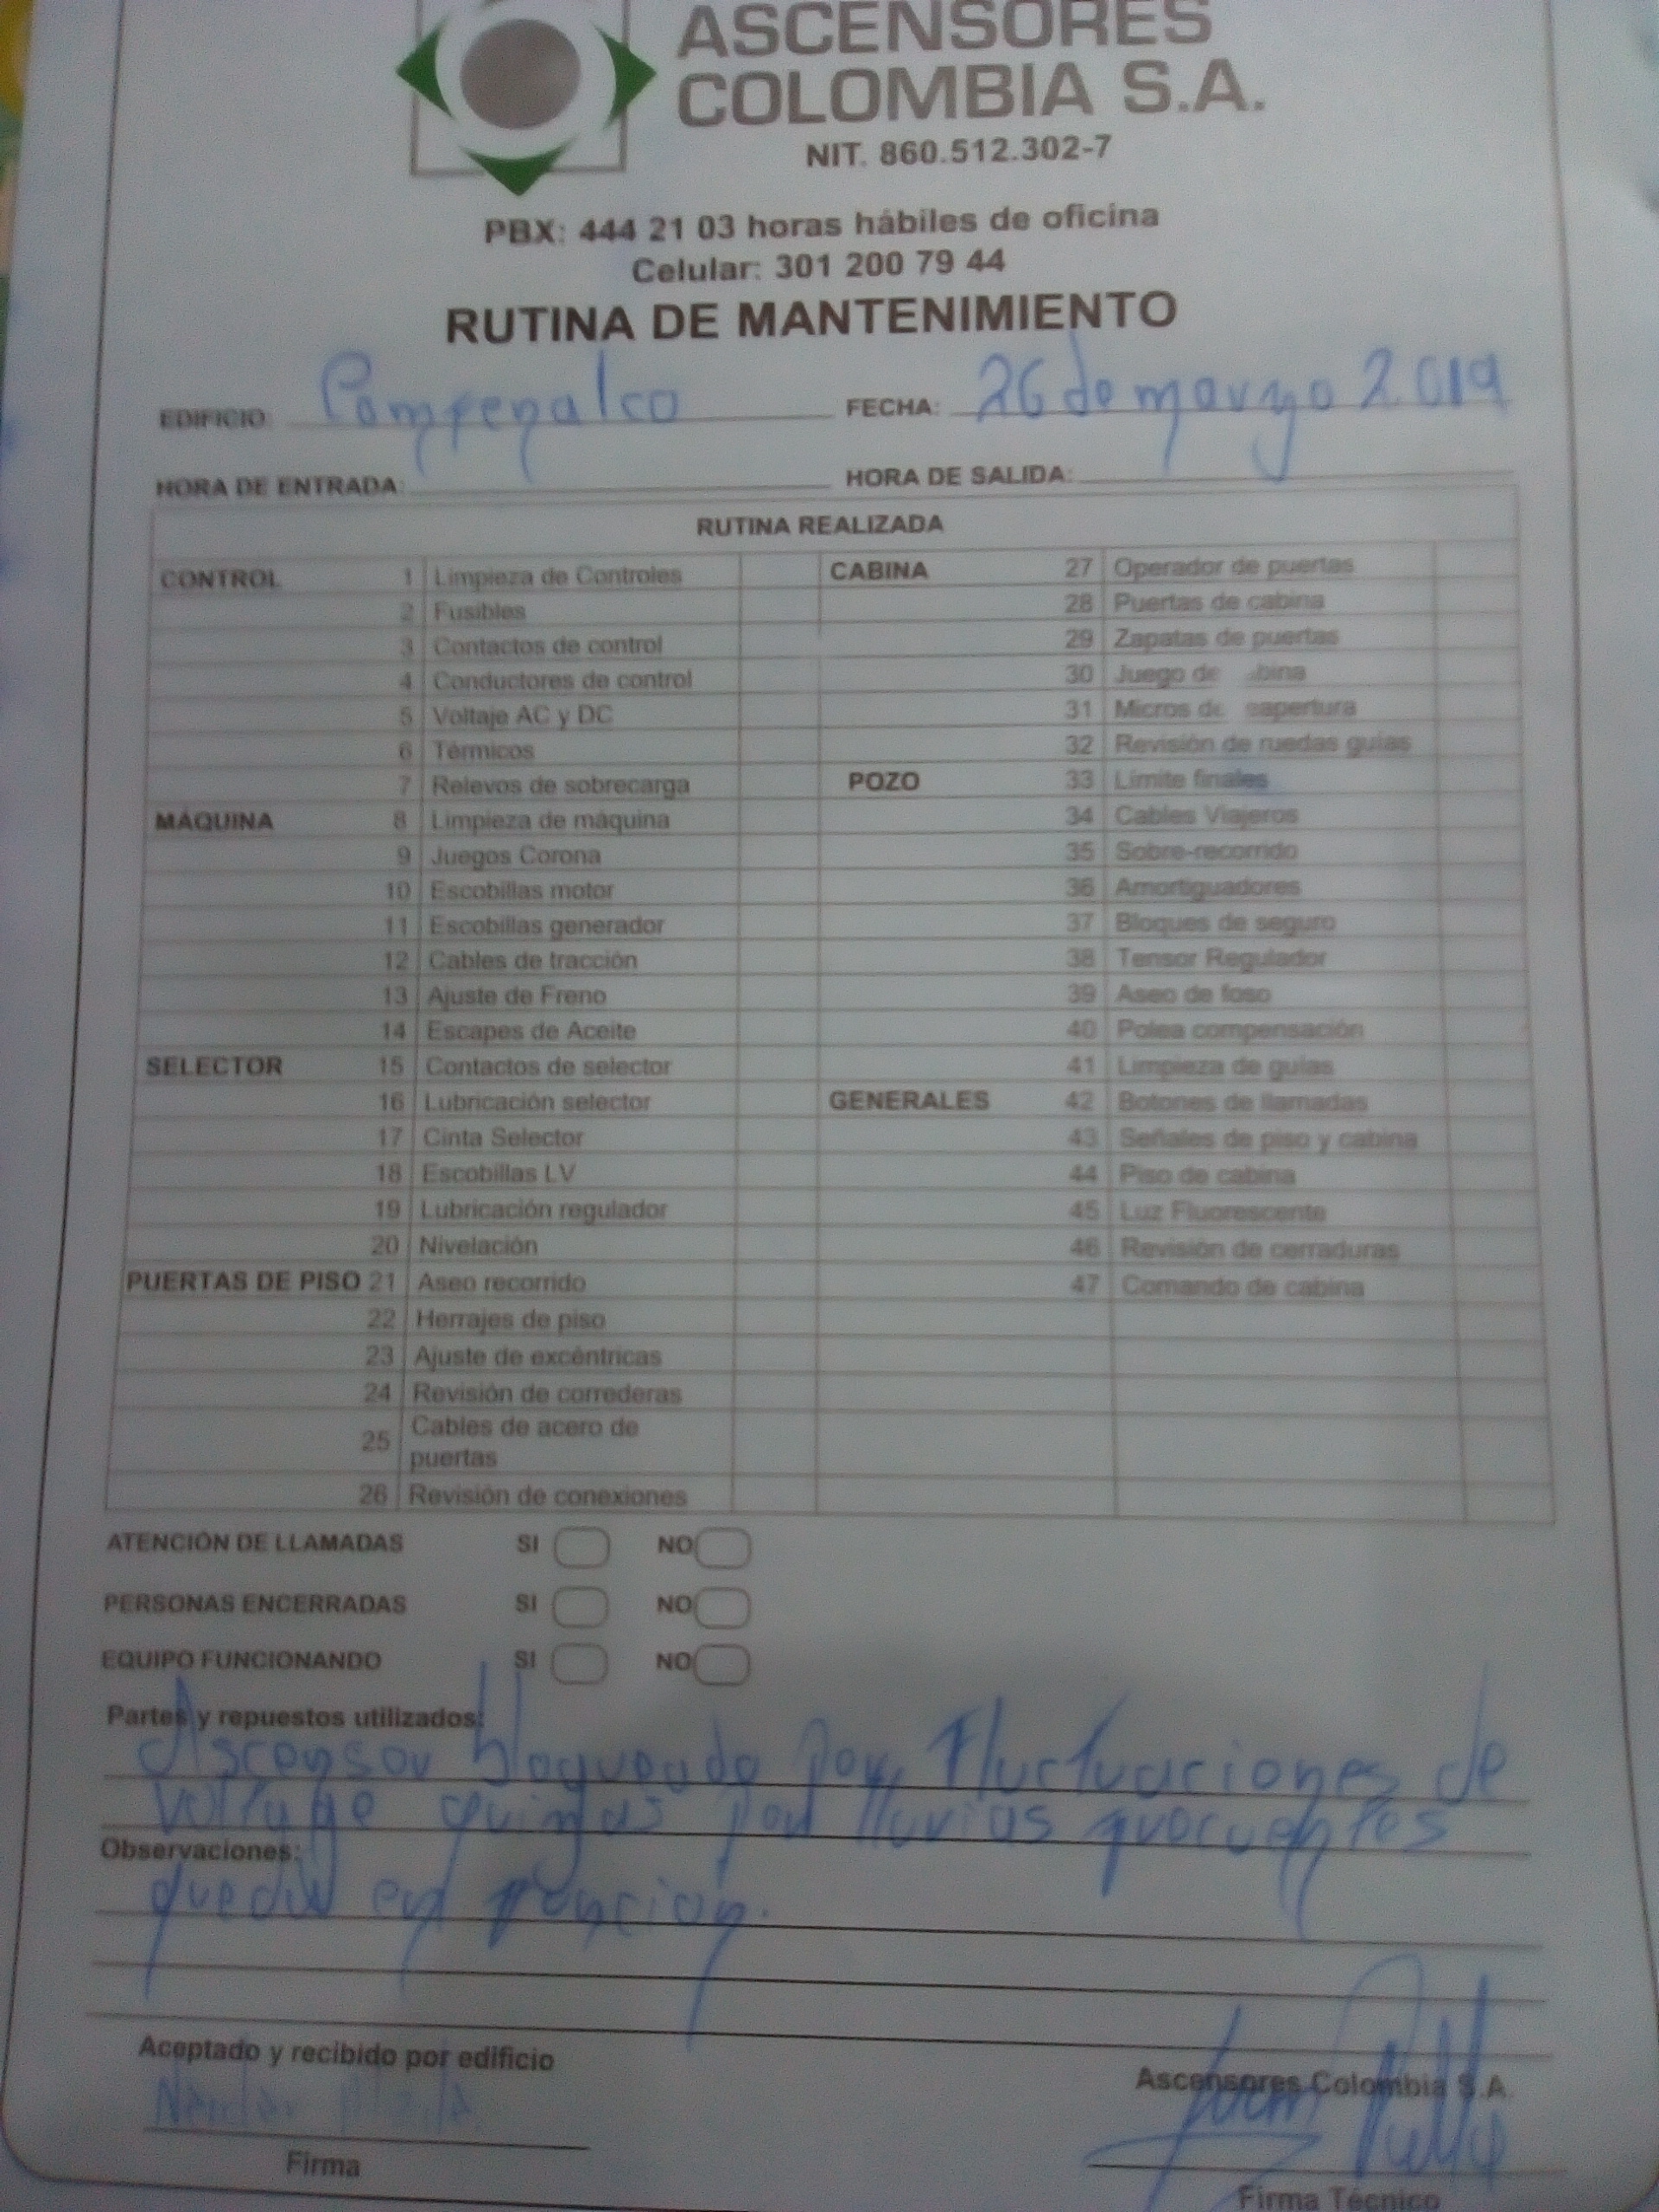 ASCENSORES
COLOMBIA S.A.
NIT. 860.512.302-7
PBX: 444 21 03 horas hábiles de oficina
Celular: 301 200 79 44
RUTINA DE MANTENIMIENTO
EDIFICIO: FECHA: 26 de marzo 2019
HORA DE ENTRADA: HORA DE SALIDA:
RUTINA REALIZADA
CONTROL 1 Limpieza de Controles CABINA 27 Operador de puertas
2 Fusibles 28 Puertas de cabina
3 Contactos de control 29 Zapatas de puertas
4 Conductores de control 30 Juego de bina
5 Voltaje AC y DC 31 Micros de eapertura
6 Térmicos 32 Revisión de ruedas guías
7 Relevos de sobrecarga POZO 33 Limite finales
MÁQUINA 8 Limpieza de máquina 34 Cables Viajeros
9 Juegos Corona 35 Sobre-recorrido
10 Escobillas motor 36 Amortiguadores
11 Escobillas generador 37 Bloques de seguro
12 Cables de tracción 38 Tensor Regulador
13 Ajuste de Freno 39 Aseo de foso
14 Escapes de Aceite 40 Polea compensación
SELECTOR 15 Contactos de selector 41 Limpieza de guías
16 Lubricación selector GENERALES 42 Botones de llamadas
17 Cinta Selector 43 Señales de piso y cabina
18 Escobillas LV 44 Piso de cabina
19 Lubricación regulador 45 Luz Fluorescente
20 Nivelación 46 Revisión de cerraduras
PUERTAS DE PISO 21 Aseo recorrido 47 Comando de cabina
22 Herrajes de piso
23 Ajuste de excéntricas
24 Revisión de correderas
25 Cables de acero de
puertas
26 Revisión de conexiones
ATENCIÓN DE LLAMADAS SI NO
PERSONAS ENCERRADAS SI NO
EQUIPO FUNCIONANDO SI NO
Partes y repuestos utilizados:
Ascensor bloqueado por Fluctuaciones de
voltage por lluvias
Observaciones:
queda en
Aceptado y recibido por edificio
Ascensores Colombia S.A.
Firma
Firma Técnico